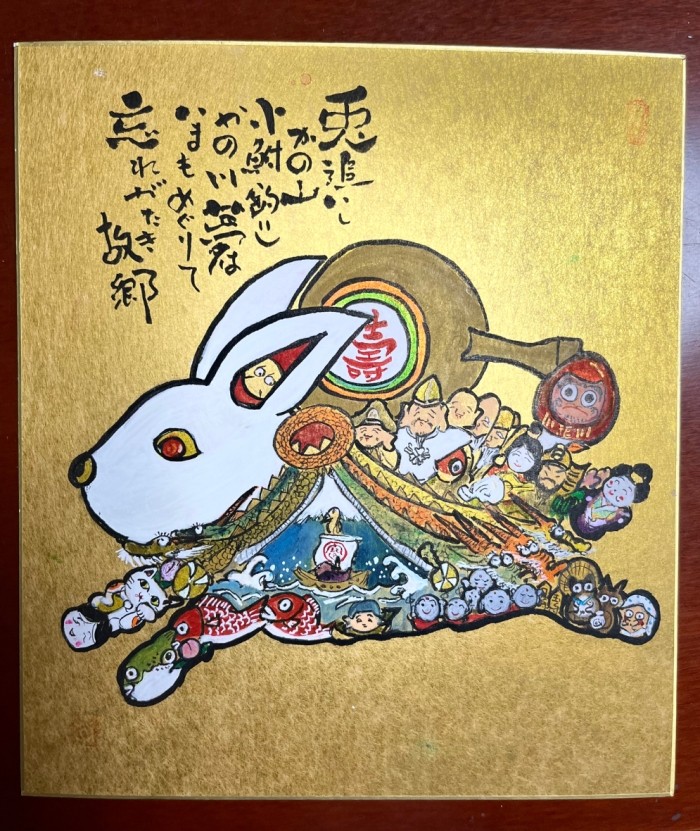 兎追いし
かの山
小鮒釣りし
かの川夢は
いまもめぐりて
忘れがたき
故郷
壽